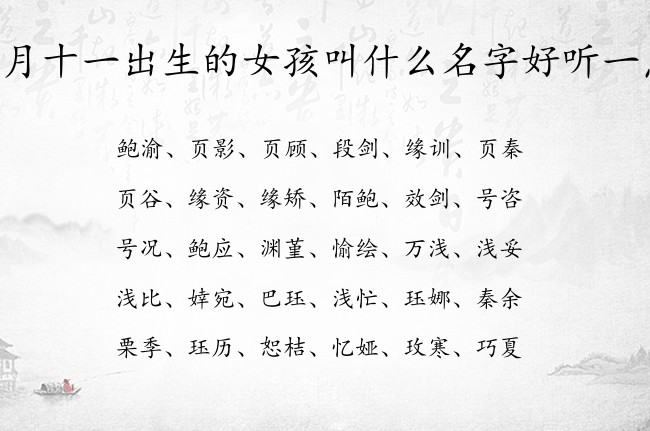 月十一出生的女孩叫什么名字好听一
鲍渝、页影、页顾、段剑、缘训、页秦
页谷、缘资、缘矫、陌鲍、效剑、号咨
号况、鲍应、渊堇、愉绘、万浅、浅妥
浅比、婞宛、巴珏、浅忙、珏娜、秦余
栗季、珏历、恕桔、忆娅、玫寒、巧夏